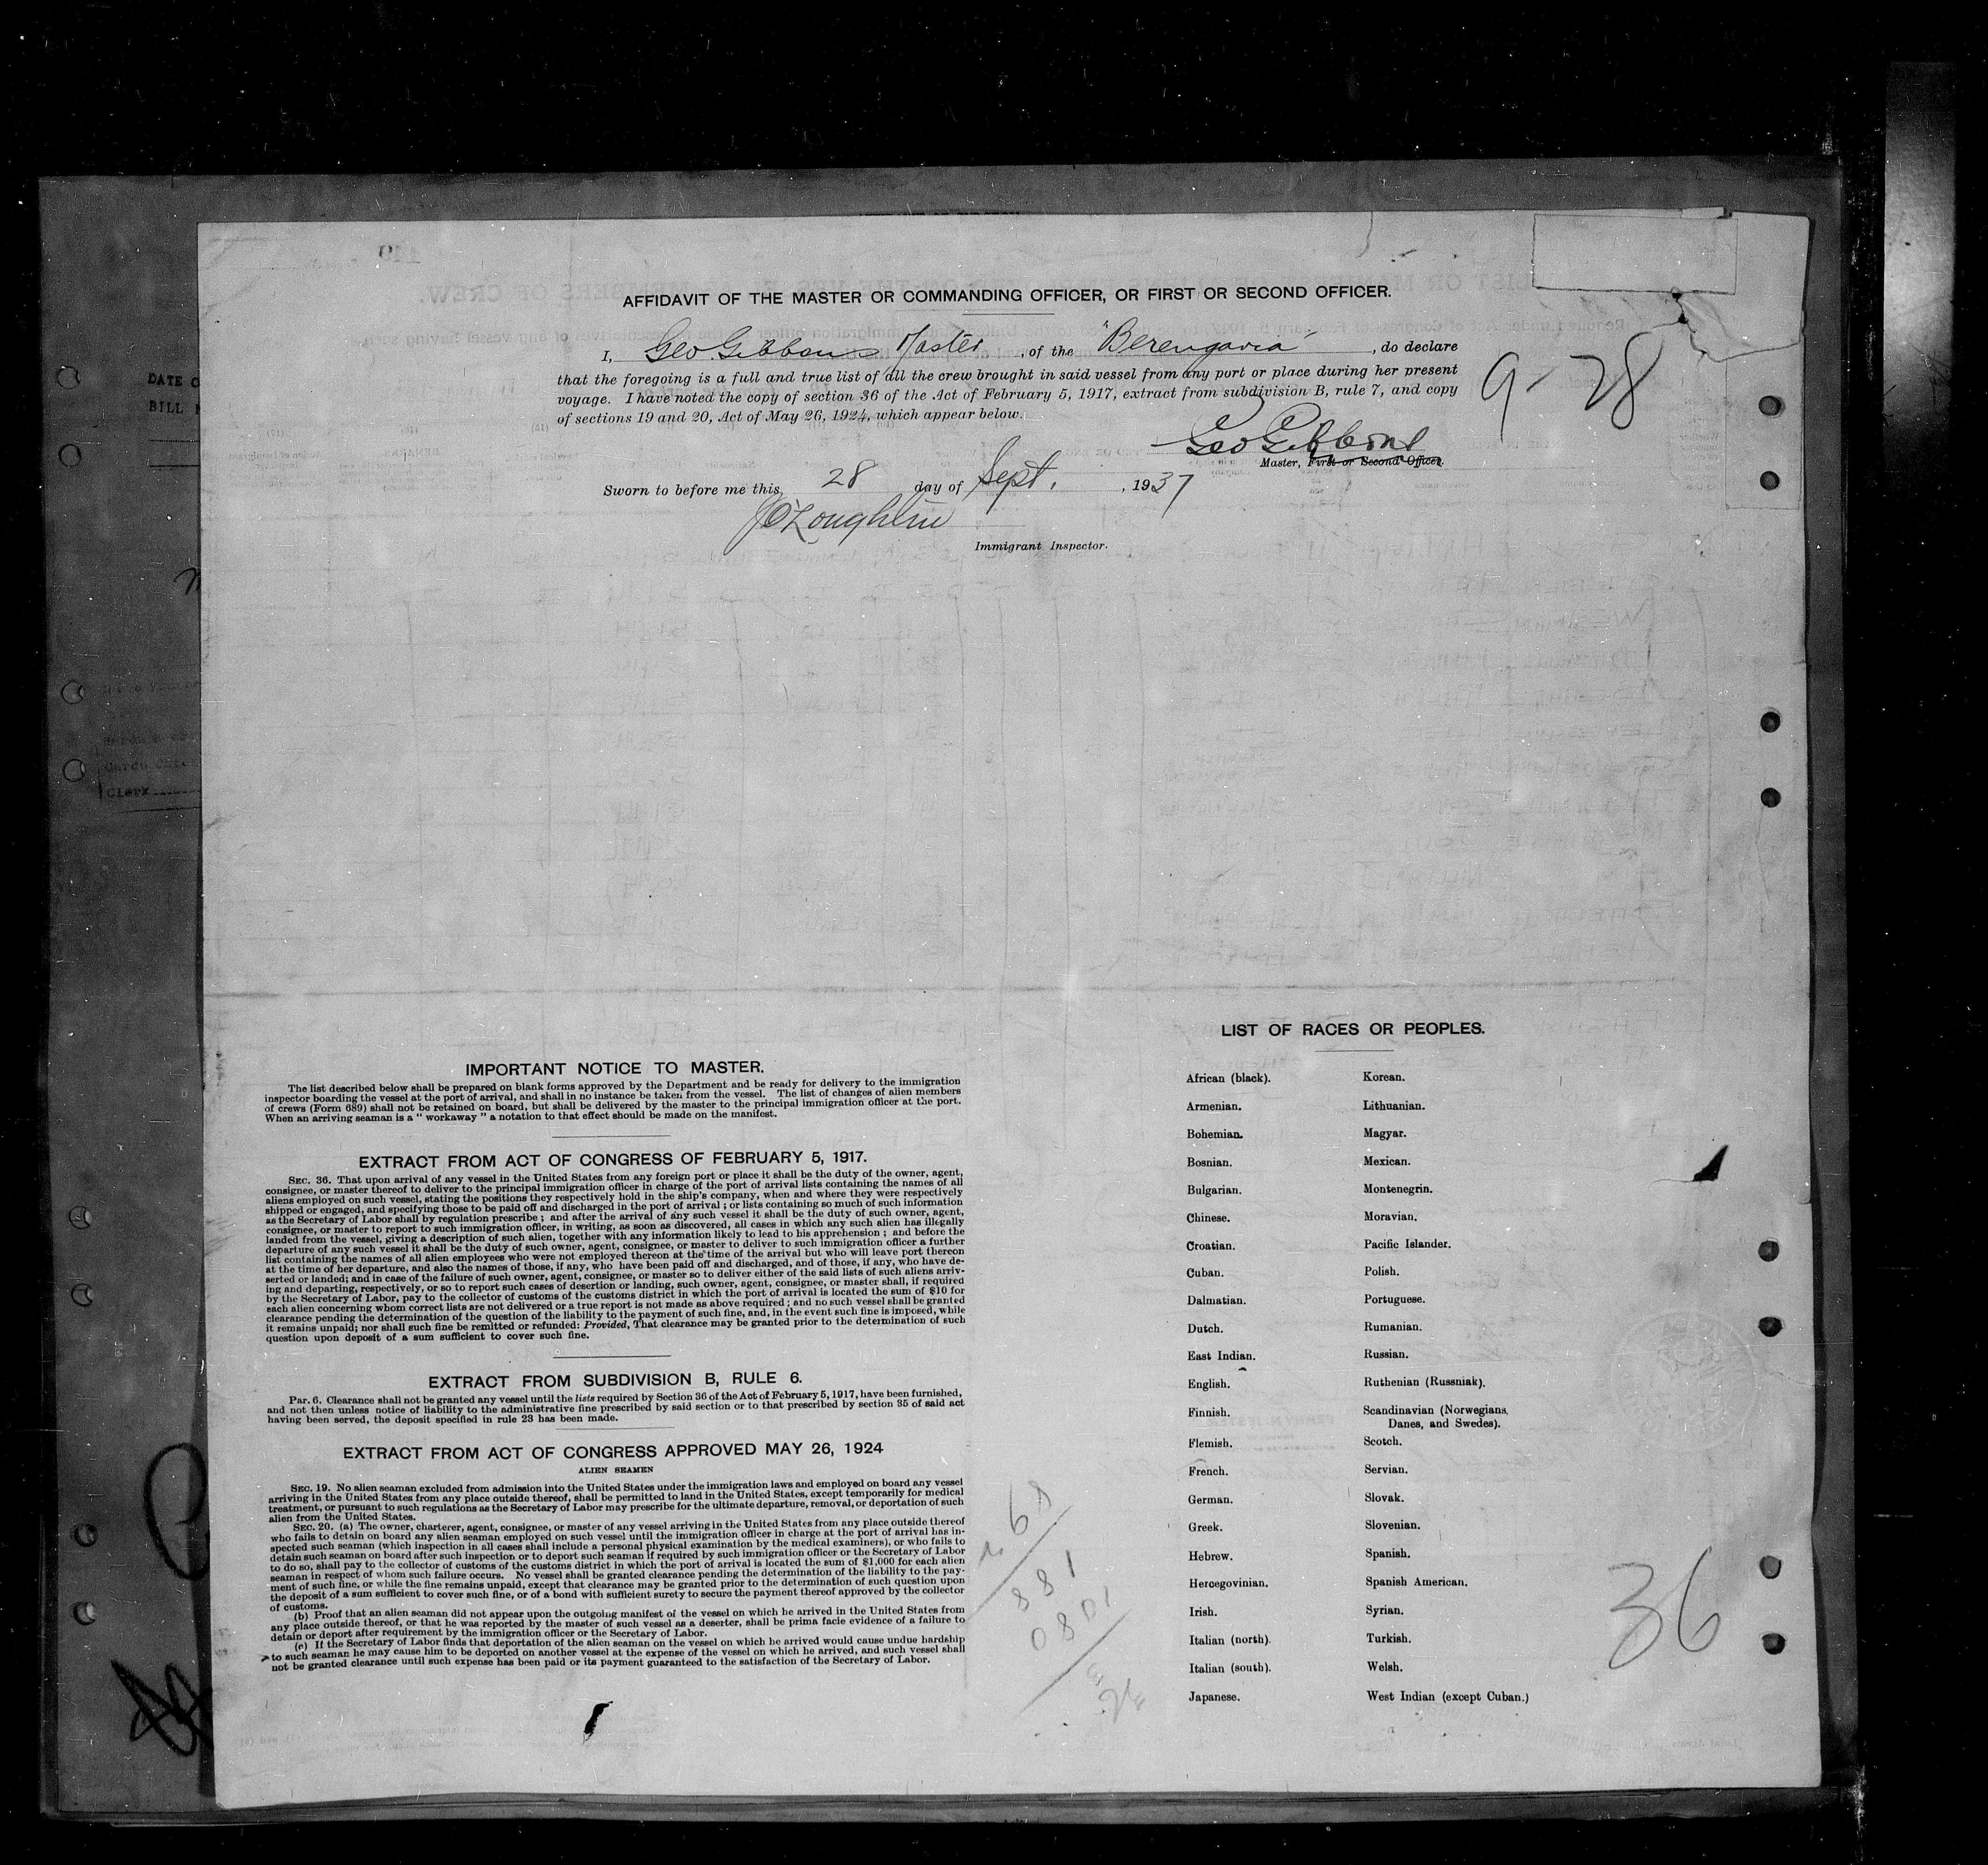 AFFIDAVIT OF THE MASTER OR COMMANDING OFFICER, OR FIRST OR SECOND OFFICER.
I, Geo Gibbons Master, of the "Berengaria", do declare
that the foregoing is a full and true list of all the crew brought in said vessel from any port or place during her present
voyage. I have noted the copy of section 36 of the Act of February 5, 1917, extract from subdivision B, rule 7, and copy
of sections 19 and 20, Act of May 26, 1924, which appear below.
9-28
Geo Gibbons
Master, First or Second Officer.
Sworn to before me this 28 day of Sept., 1937
O'Loughlin
Immigrant Inspector.
DATE O
BILL
Clerk
IMPORTANT NOTICE TO MASTER.
The list described below shall be prepared on blank forms approved by the Department and be ready for delivery to the immigration
inspector boarding the vessel at the port of arrival, and shall in no instance be taken from the vessel. The list of changes of alien members
of crews (Form 689) shall not be retained on board, but shall be delivered by the master to the principal immigration officer at the port.
When an arriving seaman is a "workaway" a notation to that effect should be made on the manifest.
EXTRACT FROM ACT OF CONGRESS OF FEBRUARY 5, 1917.
SEC. 36. That upon arrival of any vessel in the United States from any foreign port or place it shall be the duty of the owner, agent,
consignee, or master thereof to deliver to the principal immigration officer in charge of the port of arrival lists containing the names of all
aliens employed on such vessel, stating the positions they respectively hold in the ship's company, when and where they were respectively
shipped or engaged, and specifying those to be paid off and discharged in the port of arrival; or lists containing so much of such information
as the Secretary of Labor shall by regulation prescribe; and after the arrival of any such vessel it shall be the duty of such owner, agent,
consignee, or master to report to such immigration officer, in writing, as soon as discovered, all cases in which any such alien has illegally
landed from the vessel, giving a description of such alien, together with any information likely to lead to his apprehension; and before the
departure of any such vessel it shall be the duty of such owner, agent, consignee, or master to deliver to such immigration officer a further
list containing the names of all alien employees who were not employed thereon at the time of the arrival but who will leave port thereon
at the time of her departure, and also the names of those, if any, who have been paid off and discharged, and of those, if any, who have de-
serted or landed; and in case of the failure of such owner, agent, consignee, or master so to deliver either of the said lists of such aliens arriv-
ing and departing, respectively, or so to report such cases of desertion or landing, such owner, agent, consignee, or master shall, if required
by the Secretary of Labor, pay to the collector of customs of the customs district in which the port of arrival is located the sum of $10 for
each alien concerning whom correct lists are not delivered or a true report is not made as above required; and no such vessel shall be granted
clearance pending the determination of the question of the liability to the payment of such fine, and, in the event such fine is imposed, while
it remains unpaid; nor shall such fine be remitted or refunded: Provided, That clearance may be granted prior to the determination of such
question upon deposit of a sum sufficient to cover such fine.
EXTRACT FROM SUBDIVISION B, RULE 6.
PAR. 6. Clearance shall not be granted any vessel until the lists required by Section 36 of the Act of February 5, 1917, have been furnished,
and not then unless notice of liability to the administrative fine prescribed by said section or to that prescribed by section 35 of said act
having been served, the deposit specified in rule 23 has been made.
EXTRACT FROM ACT OF CONGRESS APPROVED MAY 26, 1924
ALIEN SEAMEN
SEC. 19. No alien seaman excluded from admission into the United States under the immigration laws and employed on board any vessel
arriving in the United States from any place outside thereof, shall be permitted to land in the United States, except temporarily for medical
treatment, or pursuant to such regulations as the Secretary of Labor may prescribe for the ultimate departure, removal, or deportation of such
alien from the United States.
SEC. 20. (a) The owner, charterer, agent, consignee, or master of any vessel arriving in the United States from any place outside thereof
who fails to detain on board any alien seaman employed on such vessel until the immigration officer in charge at the port of arrival has in-
spected such seaman (which inspection in all cases shall include a personal physical examination by the medical examiners), or who fails to
detain such seaman on board after such inspection or to deport such seaman if required by such immigration officer or the Secretary of Labor
to do so, shall pay to the collector of customs of the customs district in which the port of arrival is located the sum of $1,000 for each alien
seaman in respect of whom such failure occurs. No vessel shall be granted clearance pending the determination of the liability to the pay-
ment of such fine, or while the fine remains unpaid, except that clearance may be granted prior to the determination of such question upon
the deposit of a sum sufficient to cover such fine, or of a bond with sufficient surety to secure the payment thereof approved by the collector
of customs.
(b) Proof that an alien seaman did not appear upon the outgoing manifest of the vessel on which he arrived in the United States from
any place outside thereof, or that he was reported by the master of such vessel as a deserter, shall be prima facie evidence of a failure to
detain or deport after requirement by the immigration officer or the Secretary of Labor.
(c) If the Secretary of Labor finds that deportation of the alien seaman on the vessel on which he arrived would cause undue hardship
to such seaman he may cause him to be deported on another vessel at the expense of the vessel on which he arrived, and such vessel shall
not be granted clearance until such expense has been paid or its payment guaranteed to the satisfaction of the Secretary of Labor.
LIST OF RACES OR PEOPLES.
African (black).
Armenian.
Bohemian.
Bosnian.
Bulgarian.
Chinese.
Croatian.
Cuban.
Dalmatian.
Dutch.
East Indian.
English.
Finnish.
Flemish.
French.
German.
Greek.
Hebrew.
Hercegovinian.
Irish.
Italian (north).
Italian (south).
Japanese.
Korean.
Lithuanian.
Magyar.
Mexican.
Montenegrin.
Moravian.
Pacific Islander.
Polish.
Portuguese.
Rumanian.
Russian.
Ruthenian (Russniak).
Scandinavian (Norwegians,
Danes, and Swedes).
Scotch.
Servian.
Slovak.
Slovenian.
Spanish.
Spanish American.
Syrian.
Turkish.
Welsh.
West Indian (except Cuban.)
36